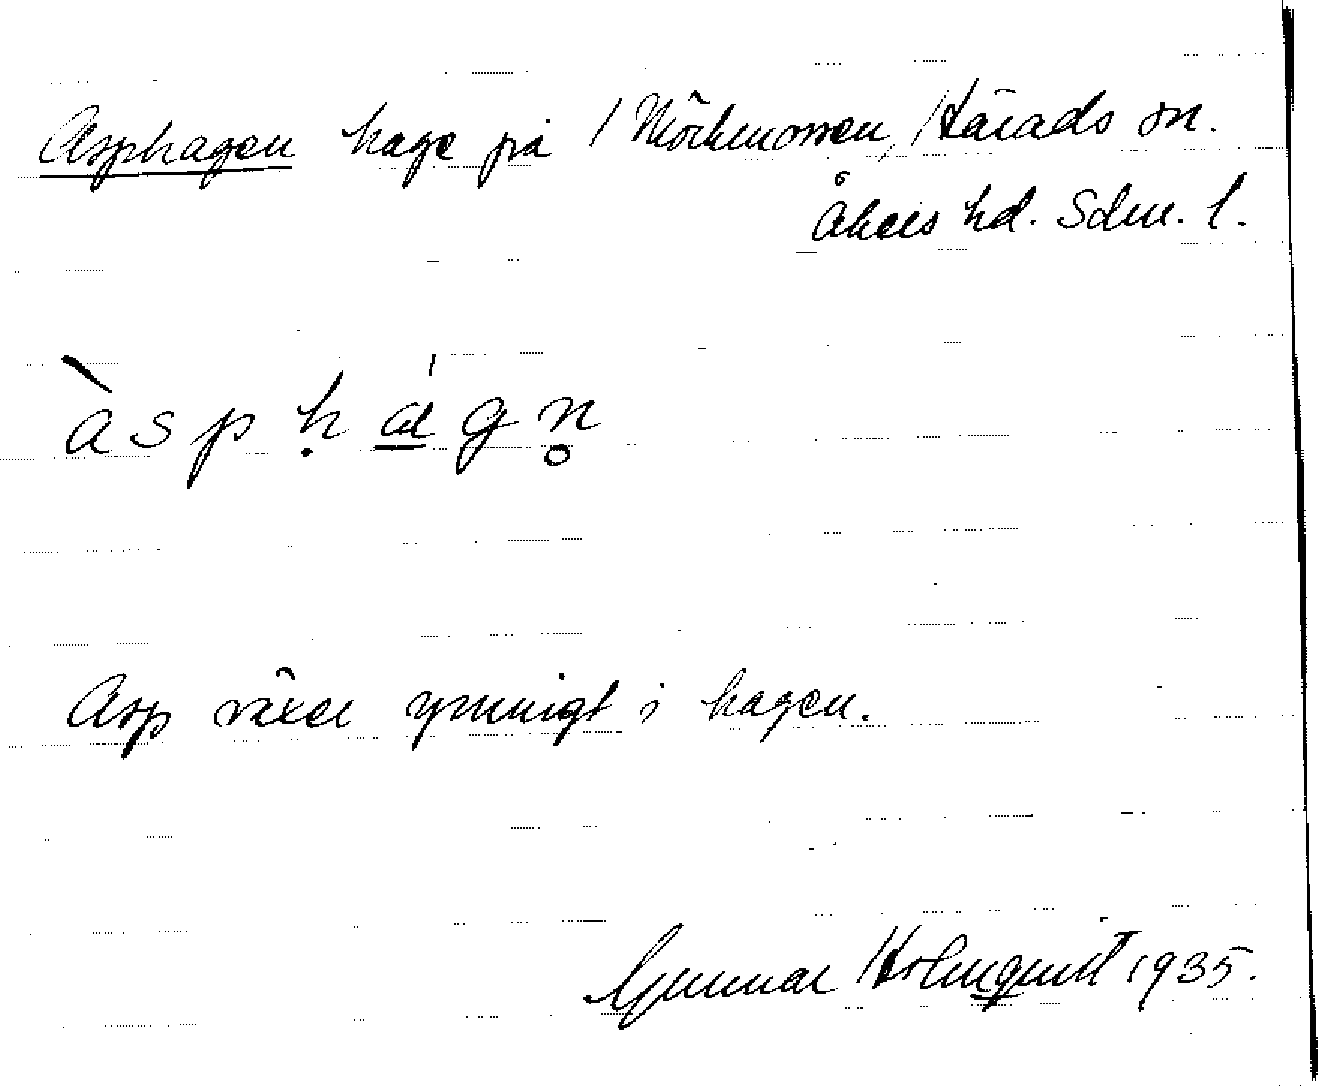 Asphagen hage på 1 Mörkmossen, Härads sn.
Åkers hd. Sdm. l.
àspḥa̲ˈgn̥
Asp växer ymnigt i hagen.
Gunnar Holmquist 1935.